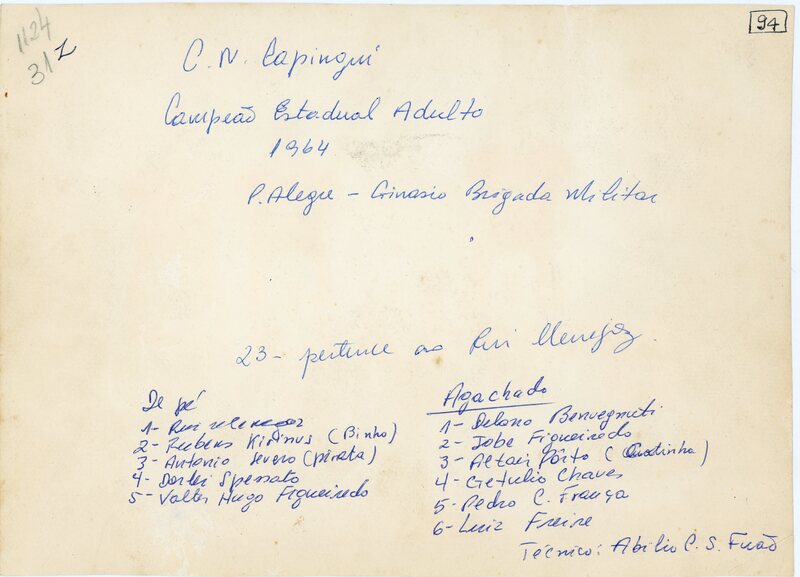 1124
31 2
94
C. N. Capinguí
Campeão Estadual Adulto
1964
P. Alegre - Ginasio Brigada Militar
23 - pertence ao Rui Menegaz
De pé
1 - Rui Menegaz
2 - Rubens Kirinus (Binho)
3 - Antonio Severo (pirata)
4 - Dorlei Spessato
5 - Valter Hugo Figueiredo
Agachado
1 - Delano Benvegnuti
2 - Jobe Figueiredo
3 - Altair Pôrto
4 - Getulio Chaves
5 - Pedro C. França
6 - Luiz Freire
Técnico: Abilio C. S. Fuão